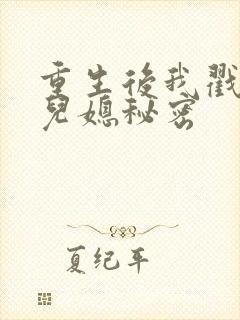 重生後我戳
兒媳秘密
夏纪年